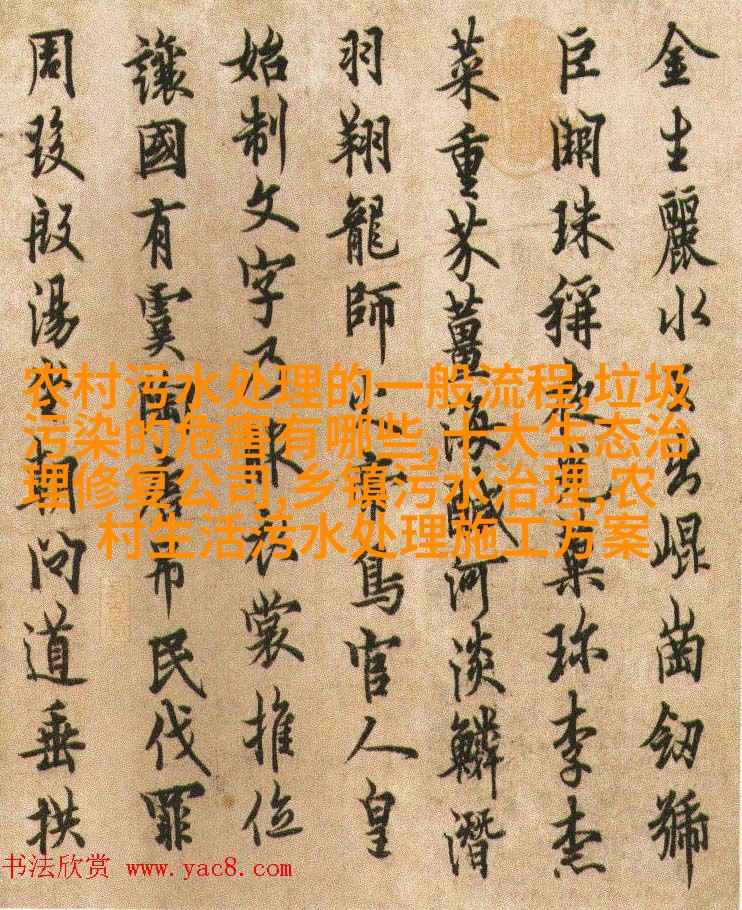 金生麗水玉出崐崗釼號
巨闕珠稱夜光菓珎李柰
菜重芥薑海鹹河淡鱗潛
羽翔龍師火帝鳥官人皇
始制文字乃服衣裳推位
讓國有虞陶唐弔民伐罪
周發殷湯坐朝問道垂拱
农村污水处理的一般流程,垃圾
污染的危害有哪些,十大生态治
理修复公司,乡镇污水治理,农
村生活污水处理施工方案
书法欣赏 www.yac8.com